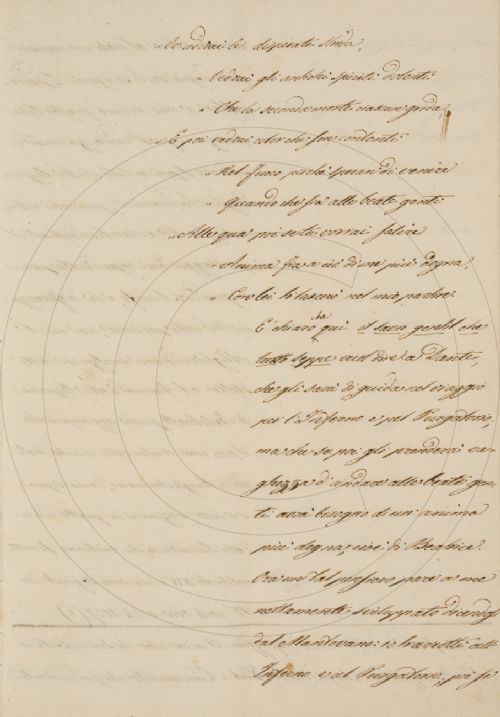 "Ove udirai le disperate strida,
" Vedrai gli antichi spiriti dolenti
" Che la seconda morte ciascun grida,
" E poi vedrai color che son contenti
" Nel fuoco perché speran di venire
" Quando che sia alle beate genti
" Alle qua' poi se tu vorrai salire
" Anima fia a ciò di me più degna,
" Con lei ti lascerò nel mio partire.
E chiaro che qui il savio gentil che
tutto seppe vuol dire a Dante,
che gli sarà di guida nel viaggio
per l'Inferno e pel Purgatorio,
ma che se poi gli prenderà va-
ghezza d'andare alle beate gen-
ti avrà bisogno di un'anima
più degna, cioè di Beatrice.
Ora un tal pensiero pare a me
nettamente sviluppato dicendosi
dal Mantovano: io trarrotti all'
Inferno e al Purgatorio, poi se